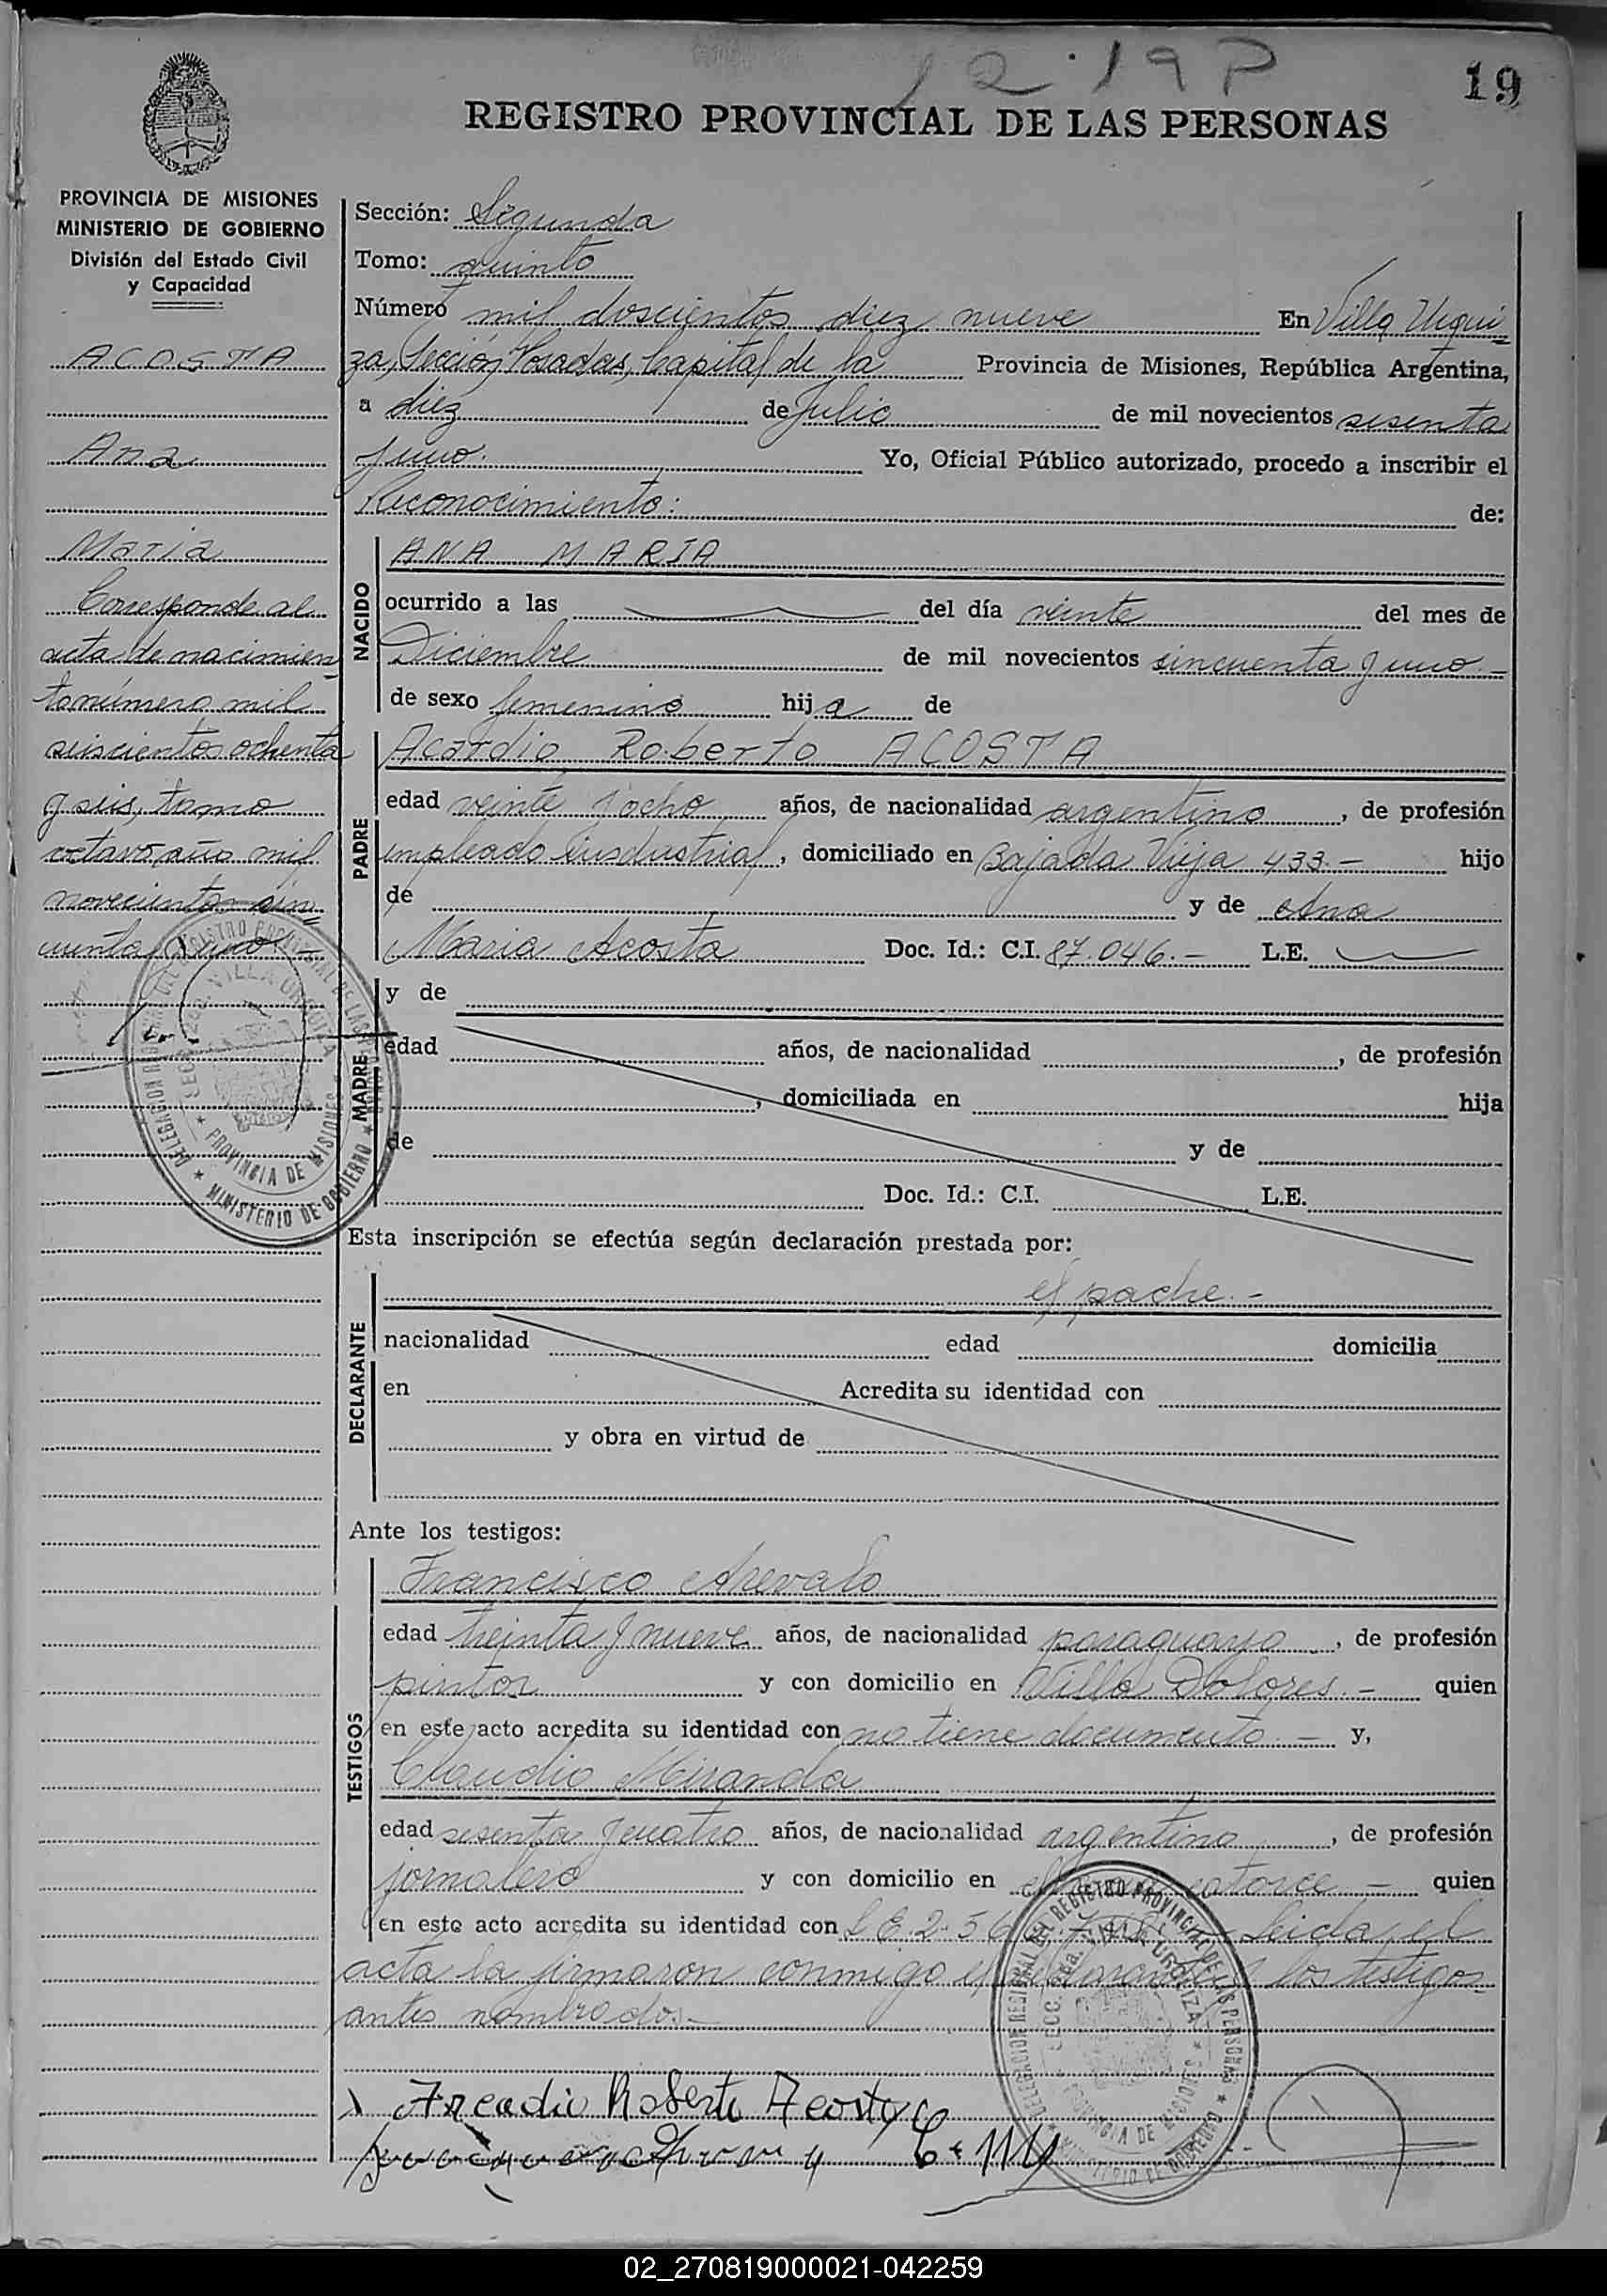 12·19P
19
REGISTRO PROVINCIAL DE LAS PERSONAS
PROVINCIA DE MISIONES
MINISTERIO DE GOBIERNO
División del Estado Civil
y Capacidad
ACOSTA
Ana
Maria
Corresponde al
acta de nacimien
to número mil
seiscientos ochenta
y seis, tomo
octavo, año mil
novecientos sin=
cuenta y uno.
Sección: Segunda
Tomo: quinto
Número mil doscientos diez nueve En Villa Urqui
za, Sección Posadas, Capital de la Provincia de Misiones, República Argentina,
a diez de Julio de mil novecientos sesenta
y uno. Yo, Oficial Público autorizado, procedo a inscribir el
Reconocimiento: de:
NACIDO
ANA MARIA
ocurrido a las del día veinte del mes de
Diciembre de mil novecientos sincuenta y uno.-
de sexo femenino hija de
PADRE
Acardio Roberto ACOSTA
edad veinte y ocho años, de nacionalidad argentino, de profesión
empleado industrial, domiciliado en Bajada Vieja 433.- hijo
de y de Ana
Maria Acosta Doc. Id.: C.I. 87.046.- L.E.
MADRE
y de
edad años, de nacionalidad , de profesión
, domiciliada en hija
de y de
Doc. Id.: C.I. L.E.
Esta inscripción se efectúa según declaración prestada por:
DECLARANTE
el padre.-
nacionalidad edad domicilia
en Acredita su identidad con
y obra en virtud de
Ante los testigos:
TESTIGOS
Francisco Arevalo
edad treinta y nueve años, de nacionalidad paraguayo, de profesión
pintor y con domicilio en Villa Dolores.- quien
en este acto acredita su identidad con no tiene documento.- y,
Claudio Miranda
edad sesenta y cuatro años, de nacionalidad argentino, de profesión
jornalero y con domicilio en catorce - quien
en este acto acredita su identidad con L E 2.56 Leida el
acta la firmaron conmigo el los testigos
antes nombrados.-
Arcadio Roberto Acosta
DELEGACION REGIONAL DEL REGISTRO PROVINCIAL DE LAS PERSONAS
SECC. 2da. VILLA URQUIZA
PROVINCIA DE MISIONES
MINISTERIO DE GOBIERNO
02_270819000021-042259